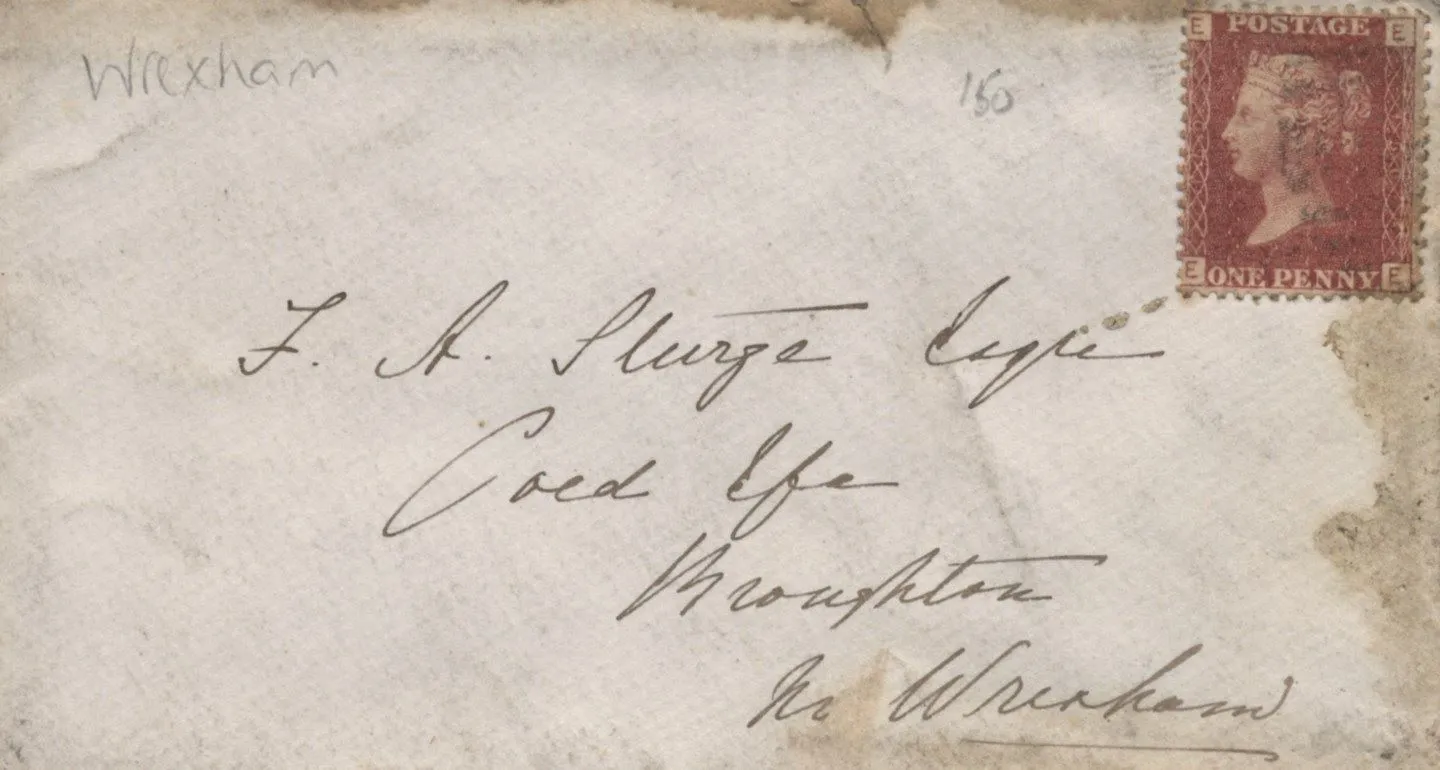 Wrexham
150
E POSTAGE E
E ONE PENNY E
F. A. Sturge Esqre
Coed Efa
Broughton
Nr Wrexham